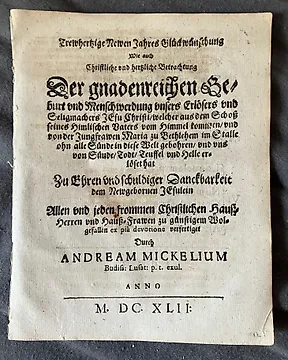 Trewhertzige Newen Jahres Glückwünschung
Wie auch
Christliche und hertzliche Betrachtung
Der gnadenreichen Ge-
burt und Menschwerdung unsers Erlösers und
Seligmachers JEsu Christi/welcher aus dem Schoß
seines Himlischen Vaters vom Himmel kommen/ und
von der Jungfrawen Maria zu Bethlehem im Stalle
ohn alle Sünde in diese Welt gebohren/ und uns
von Sünde/Todt/Teuffel und Helle er-
löset hat
Zu Ehren und schuldiger Danckbarkeit
dem Newgebornen JEsulein
Allen und jeden frommen Christlichen Hauß-
Herren und Hauß-Frawen zu günstigem Wol-
gefallen ex piâ devotione verfertiget
Durch
ANDREAM MICKELIUM
Budiss: Lusat: p. t. exul.
ANNO
M. DC. XLII: